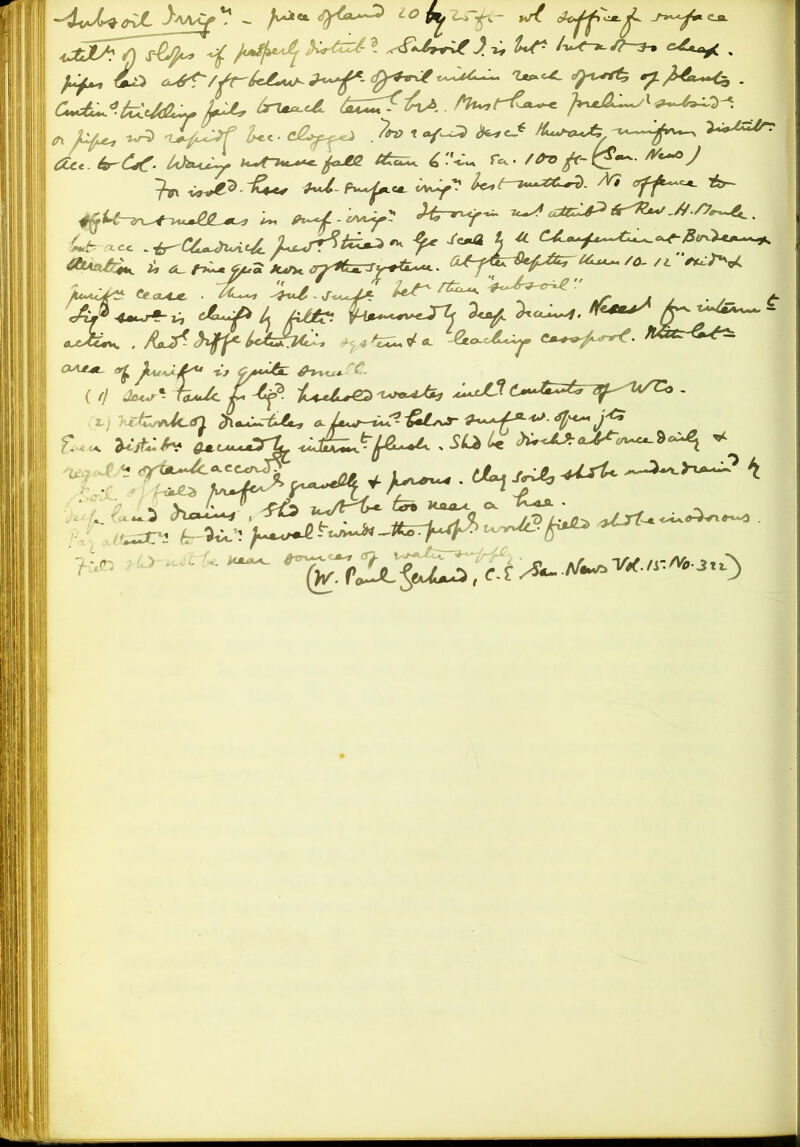 Subsoil Irrigⁿ. – piece of land 20 by 25 ft wd suffice for surface
utilⁿ of slops if properly distribᵈ. Subsoil I. is betʳ but not so cheap.
pipes laid abt 1 ft below surfᵉ of soil within reach of roots of plants.
Continˢ trickling fails to reach termˡ brs. Must have prelimʸ subsidᵉ.
or pipes wd rapidly bec. clogged. Too rapid descᵗ thwarts uniform distribⁿ.
Acc. to Col. Waring not more fall than 6" in ea. 100 ft (San. News)
For isolᵈ. hses sub-surface irrigⁿ best method. No offence to
sight or smell as in surf-irrigⁿ. Its origin usˡ attribᵈ to Rev. H. Moule.
but acc. to Chadwick prevˢ tried on lge scale by M. Charpentier at Bordeaux
Aeration is a sine qua non of the system. At gter depths than 10-12" oxidⁿ &
purifⁿ cease. Thus "sub-surfᵉ" betʳ than "subs-oil"
Liqᵈ sewᵉ is clarifᵈ by filtⁿ & removed by deep drains. Necessʸ for intermᵗ
action. Radˡ diffᵉ betw. this system & a leaching cesspool.
area of purifⁿ is quite small.
(1) Sewᵉ tank for liqᵈ. household wastes inclᵍ contents of WCs.
(2) Network of drain tiles a few inˢ below surface w. open jts
Even distribⁿ secured by intermᵗ flush. Shd be dischᵈ. abt once daily &
of tank accordᵍ
Soil of field preferʸ gravelly & porous. Clay soils shd be underdrainᵈ by
deep land drains. Shd not be too near a hse.
Pay attentⁿ to dirⁿ prevalᵗ winds – tho. propʸ workᵍ field shd be inodorous.
Field shd not be near sources of water supply.
(W. Paul Gerhard, C.E. San. News Vol. 15. No. 322)